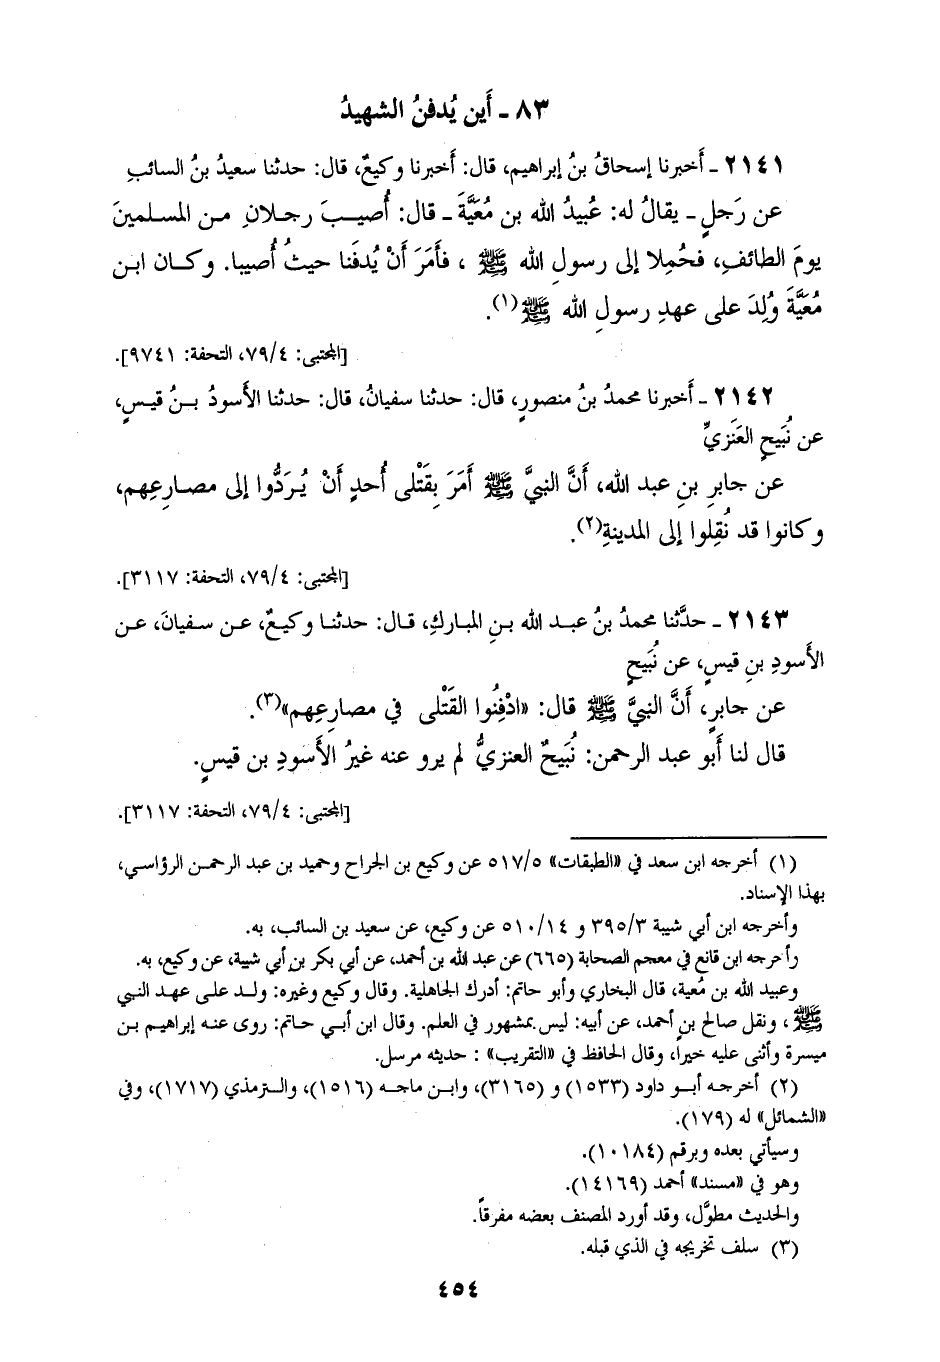 ٨٣ - أَين يُدفنُ الشهيدُ
٢١٤١ - أَخبرنا إسحاقُ بنُ إبراهيم، قال: أَخبرنا وكيعٌ، قال: حدثنا سعيدُ بنُ السائبِ
عن رَجلٍ - يقالُ له: عُبيدُ الله بن مُعَيَّةَ - قال: أُصيبَ رجلانِ من المسلمينَ
يومَ الطائفِ، فحُملا إلى رسولِ الله ﷺ ، فأَمَرَ أَنْ يُدفَنا حيثُ أُصيبا. وكان ابن
مُعَيَّةَ وُلِدَ على عهدِ رسولِ الله ﷺ(١).
[المجتبى: ٧٩/٤، التحفة: ٩٧٤١].
٢١٤٢ - أَخبرنا محمدُ بنُ منصورٍ، قال: حدثنا سفيانُ، قال: حدثنا الأَسودُ بنُ قيسٍ،
عن نُبَيحٍ العَنَزيِّ
عن جابرِ بنِ عبد الله، أَنَّ النبيَّ ﷺ أَمَرَ بِقَتْلى أُحدٍ أَنْ يُرَدُّوا إلى مصارعِهم،
وكانوا قد نُقِلوا إلى المدينةِ(٢).
[المجتبى: ٧٩/٤، التحفة: ٣١١٧].
٢١٤٣ - حدَّثنا محمدُ بنُ عبد الله بنِ المباركِ، قال: حدثنا وكيعٌ، عن سفيانَ، عن
الأَسودِ بنِ قيسٍ، عن نُبَيحٍ
عن جابرٍ، أَنَّ النبيَّ ﷺ قال: «ادْفِنُوا القَتْلى في مصارِعِهم»(٣).
قال لنا أَبو عبد الرحمن: نُبَيحٌ العنزيُّ لم يرو عنه غيرُ الأَسودِ بن قيسٍ.
[المجتبى: ٧٩/٤، التحفة: ٣١١٧].
(١) أخرجه ابن سعد في «الطبقات» ٥١٧/٥ عن وكيع بن الجراح وحميد بن عبد الرحمن الرؤاسي،
بهذا الإسناد.
وأخرجه ابن أبي شيبة ٣٩٥/٣ و ٥١٠/١٤ عن وكيع، عن سعيد بن السائب، به.
وأخرجه ابن قانع في معجم الصحابة (٦٦٥) عن عبد الله بن أحمد، عن أبي بكر بن أبي شيبة، عن وكيع، به.
وعبيد الله بن مُعية، قال البخاري وأبو حاتم: أدرك الجاهلية. وقال وكيع وغيره: ولد على عهد النبي
ﷺ ، ونقل صالح بن أحمد، عن أبيه: ليس بمشهور في العلم. وقال ابن أبي حاتم: روى عنه إبراهيم بن
ميسرة وأثنى عليه خيراً، وقال الحافظ في «التقريب» : حديثه مرسل.
(٢) أخرجه أبو داود (١٥٣٣) و (٣١٦٥)، وابن ماجه (١٥١٦)، والترمذي (١٧١٧)، وفي
«الشمائل» له (١٧٩).
وسيأتي بعده وبرقم (١٠١٨٤).
وهو في «مسند» أحمد (١٤١٦٩).
والحديث مطوَّل، وقد أورد المصنف بعضه مفرقاً.
(٣) سلف تخريجه في الذي قبله.
٤٥٤